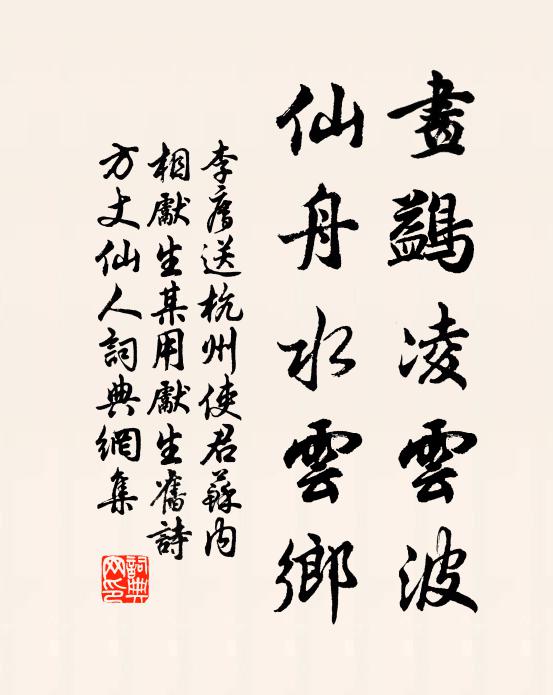 畫鷁凌雲波
仙舟水雲鄉
李廌送杭州使君蘇內
相獻生某用獻生舊詩
方丈仙人詞典網集
詞典
网印